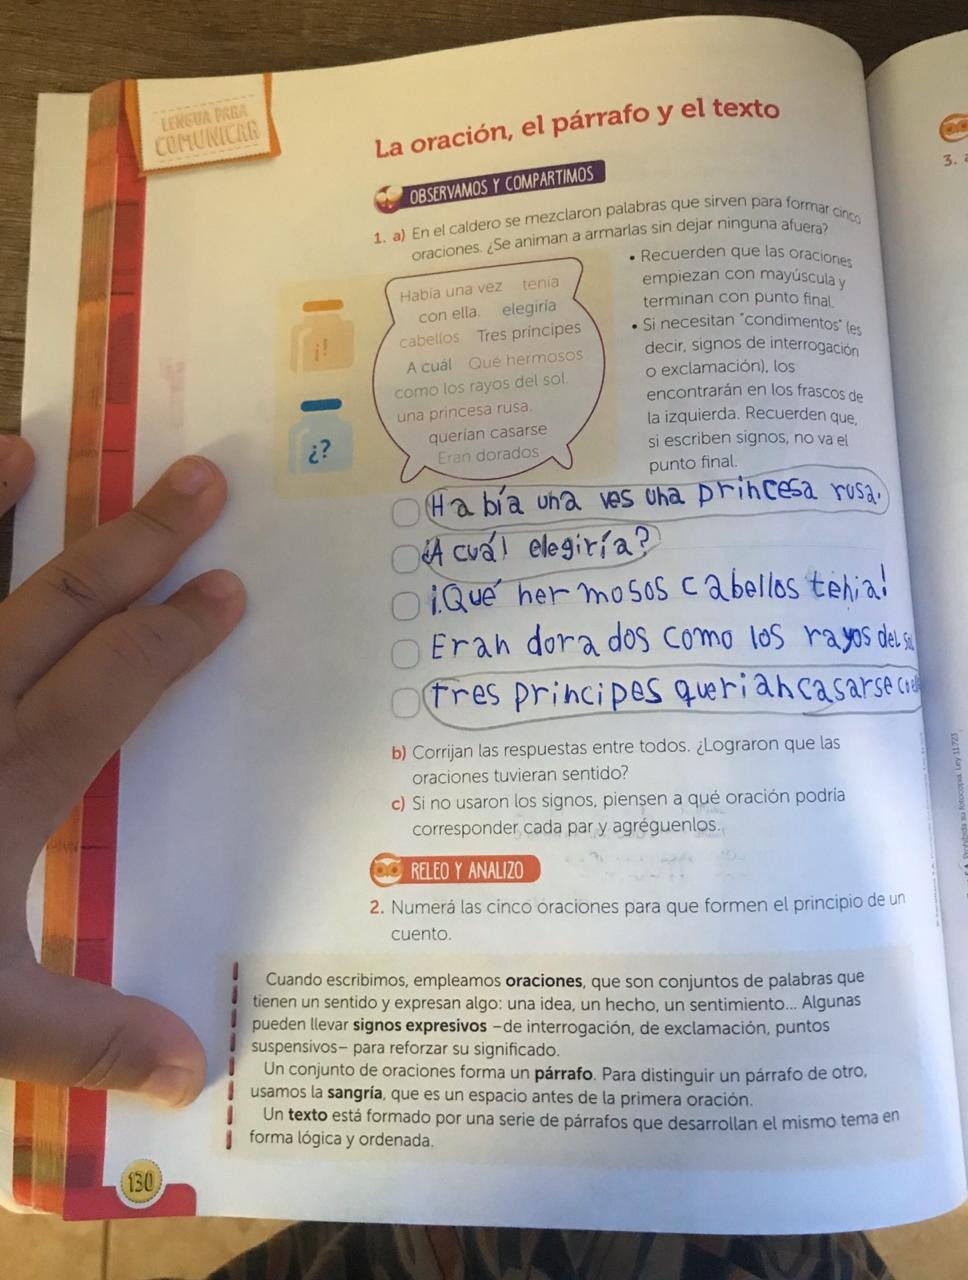 LENGUA PARA
COMUNICAR
La oración, el párrafo y el texto
OBSERVAMOS Y COMPARTIMOS
1. a) En el caldero se mezclaron palabras que sirven para formar cinco
oraciones. ¿Se animan a armarlas sin dejar ninguna afuera?
Había una vez tenía
con ella. elegiría
cabellos Tres príncipes
A cuál Qué hermosos
como los rayos del sol.
una princesa rusa.
querían casarse
Eran dorados
¡!
¿?
• Recuerden que las oraciones
empiezan con mayúscula y
terminan con punto final.
• Si necesitan "condimentos" (es
decir, signos de interrogación
o exclamación), los
encontrarán en los frascos de
la izquierda. Recuerden que,
si escriben signos, no va el
punto final.
Había una ves una princesa rusa.
¿A cuál elegiría?
¡Qué hermosos cabellos tenia!
Eran dorados como los rayos del
Tres principes querian casarse
b) Corrijan las respuestas entre todos. ¿Lograron que las
oraciones tuvieran sentido?
c) Si no usaron los signos, piensen a qué oración podría
corresponder cada par y agréguenlos.
RELEO Y ANALIZO
2. Numerá las cinco oraciones para que formen el principio de un
cuento.
Cuando escribimos, empleamos oraciones, que son conjuntos de palabras que
tienen un sentido y expresan algo: una idea, un hecho, un sentimiento... Algunas
pueden llevar signos expresivos –de interrogación, de exclamación, puntos
suspensivos– para reforzar su significado.
Un conjunto de oraciones forma un párrafo. Para distinguir un párrafo de otro,
usamos la sangría, que es un espacio antes de la primera oración.
Un texto está formado por una serie de párrafos que desarrollan el mismo tema en
forma lógica y ordenada.
130
3.
Prohibida su fotocopia. Ley 11.723